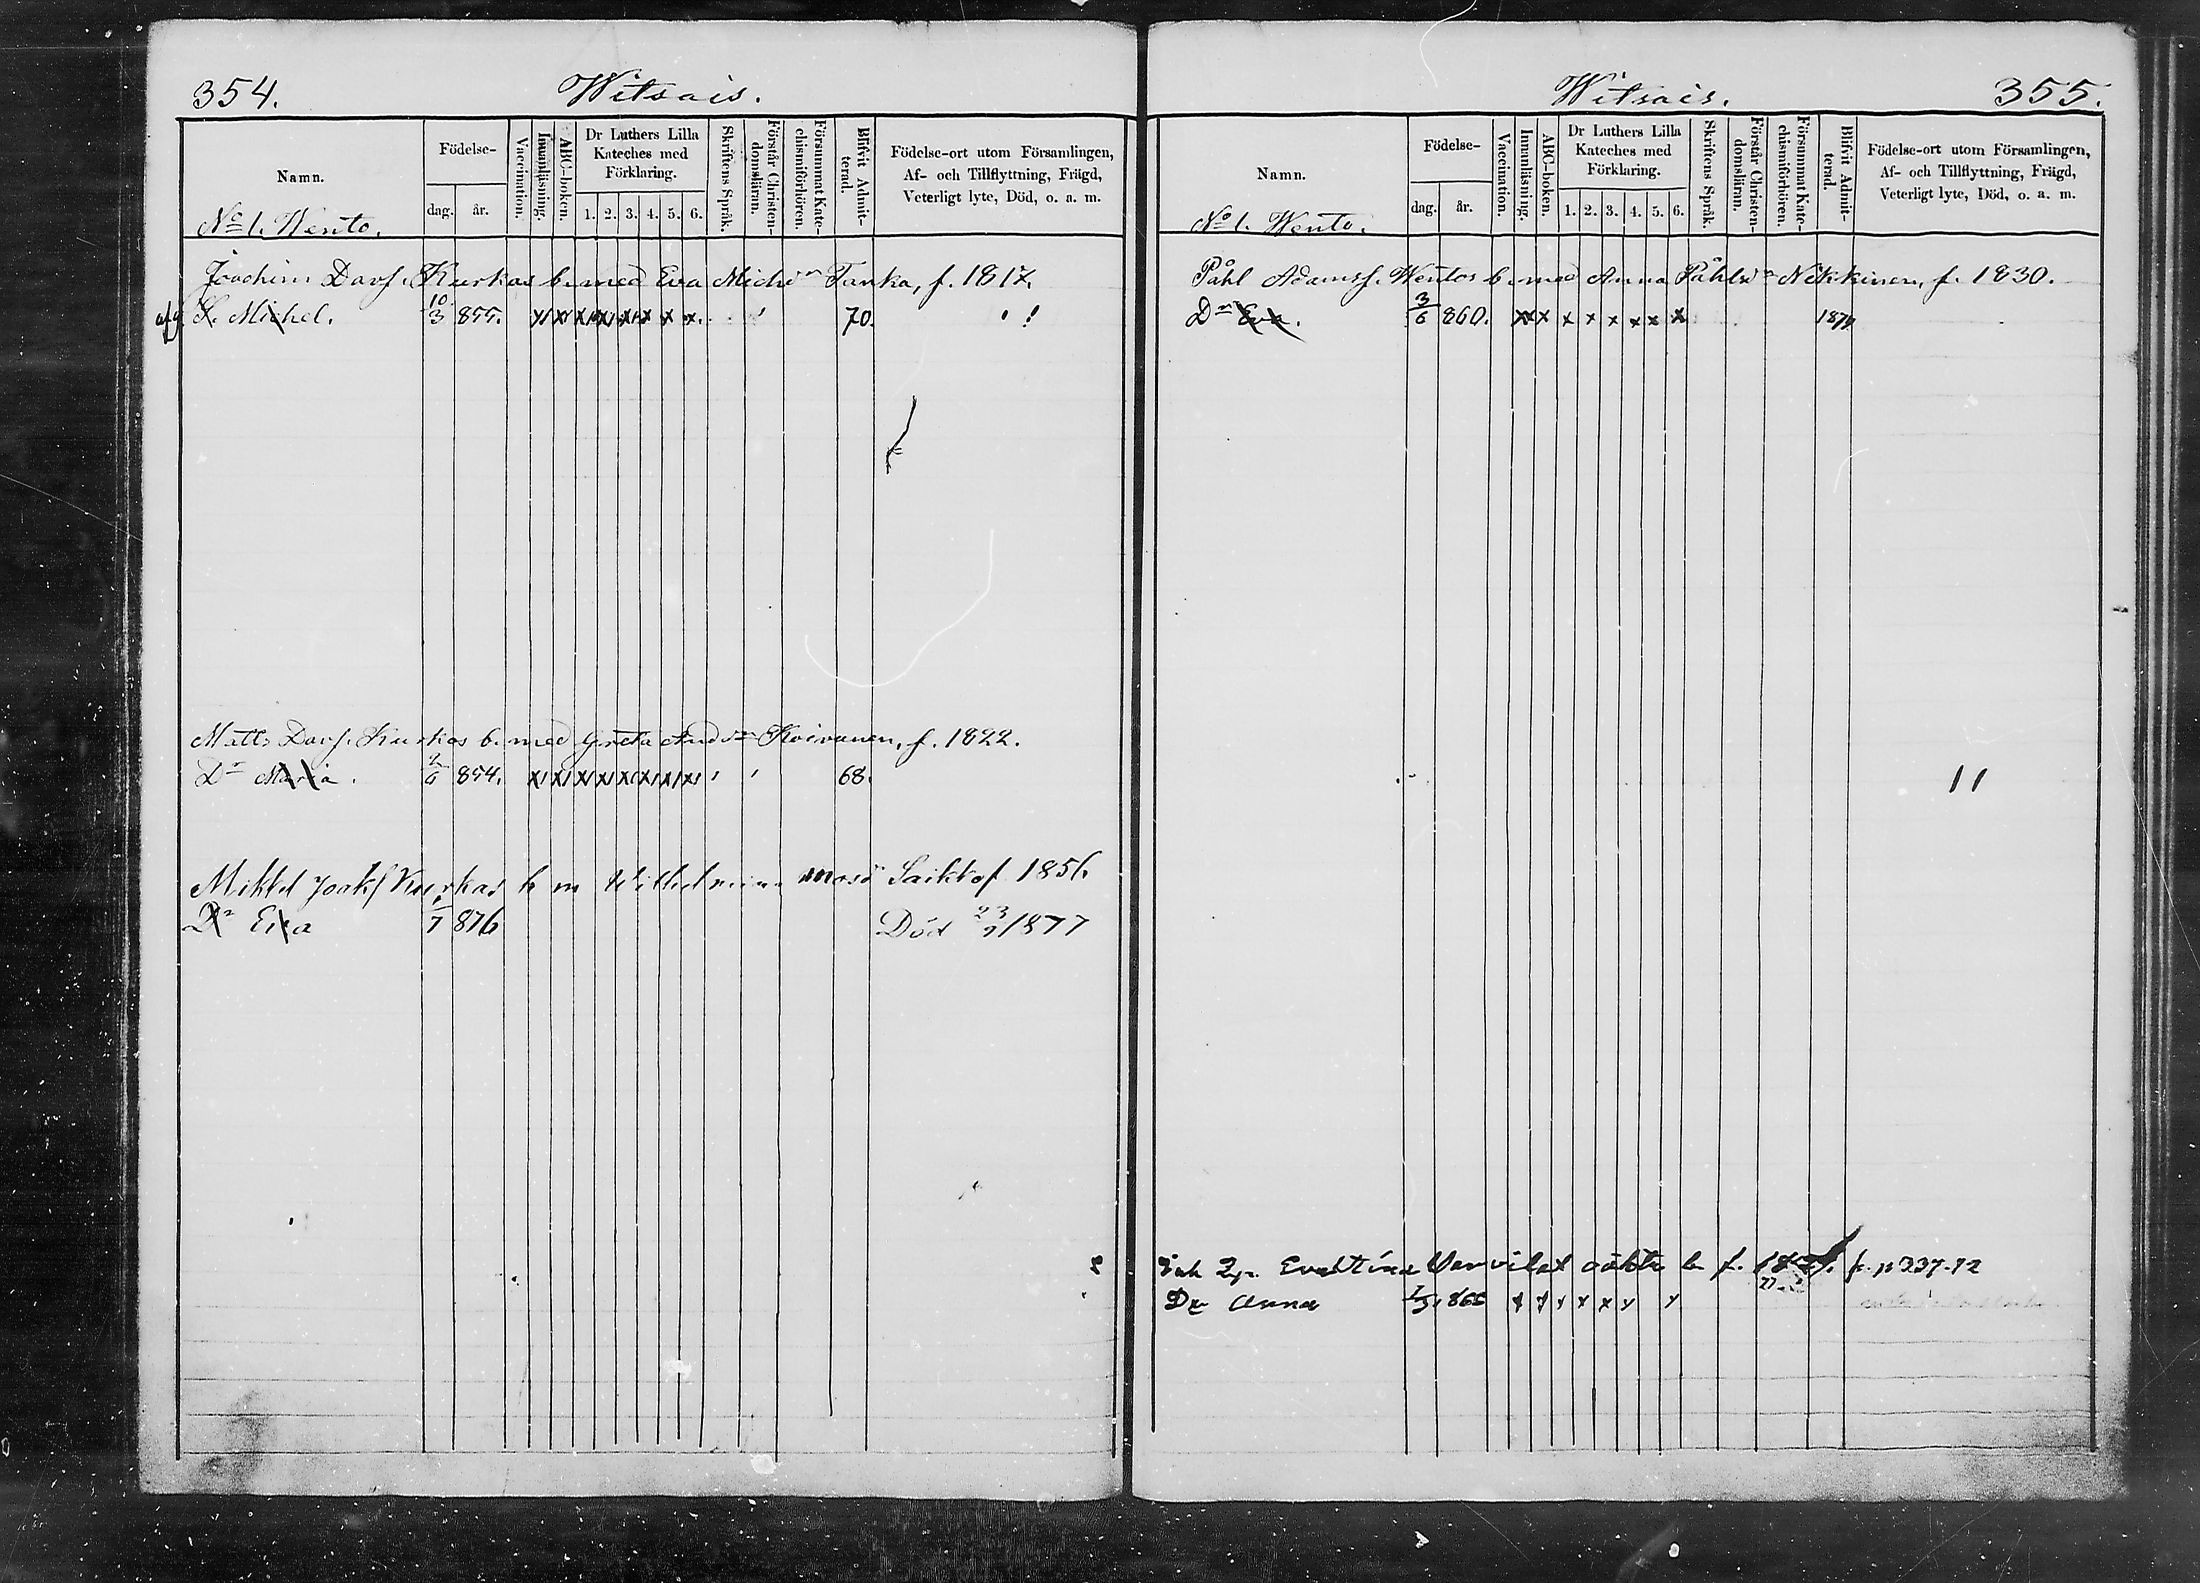 354. Witsais.
Namn.
Födelse-
dag. år.
Vaccination.
Innanläsning.
ABC-boken.
Dr Luthers Lilla
Kateches med
Förklaring.
1. 2. 3. 4. 5. 6.
Skriftens Språk.
Förstår Christen-
domsläran.
Försummat Kate-
chismiförhören.
Blifvit Admit-
terad.
Födelse-ort utom Församlingen,
Af- och Tillflyttning, Frägd,
Veterligt lyte, Död, o. a. m.
No 1. Wento.
Joachim Davs. Kurkas b. med Eva Michsdr Tanka, f. 1817.
S. Michel. 10/3 855. 70.
Matts Davs. Kurkas b. med Greta Andsdr Koivunen, f. 1822.
Dr Maria. 2/6 854. 68.
Mikkel Joaks Kurkas h m Wilhelmina f 1856
Dr Eva 1/7 876 Död 23/9 1877
Witsais. 355.
Namn.
Födelse-
dag. år.
Vaccination.
Innanläsning.
ABC-boken.
Dr Luthers Lilla
Kateches med
Förklaring.
1. 2. 3. 4. 5. 6.
Skriftens Språk.
Förstår Christen-
domsläran.
Försummat Kate-
chismiförhören.
Blifvit Admit-
terad.
Födelse-ort utom Församlingen,
Af- och Tillflyttning, Frägd,
Veterligt lyte, Död, o. a. m.
No 1. Wento.
Påhl Adamss. Wentos b. med Anna Påhlsdr Nikkinen, f. 1830.
Dr Eva. 3/6 860.
11
p 337-12
Dr Anna